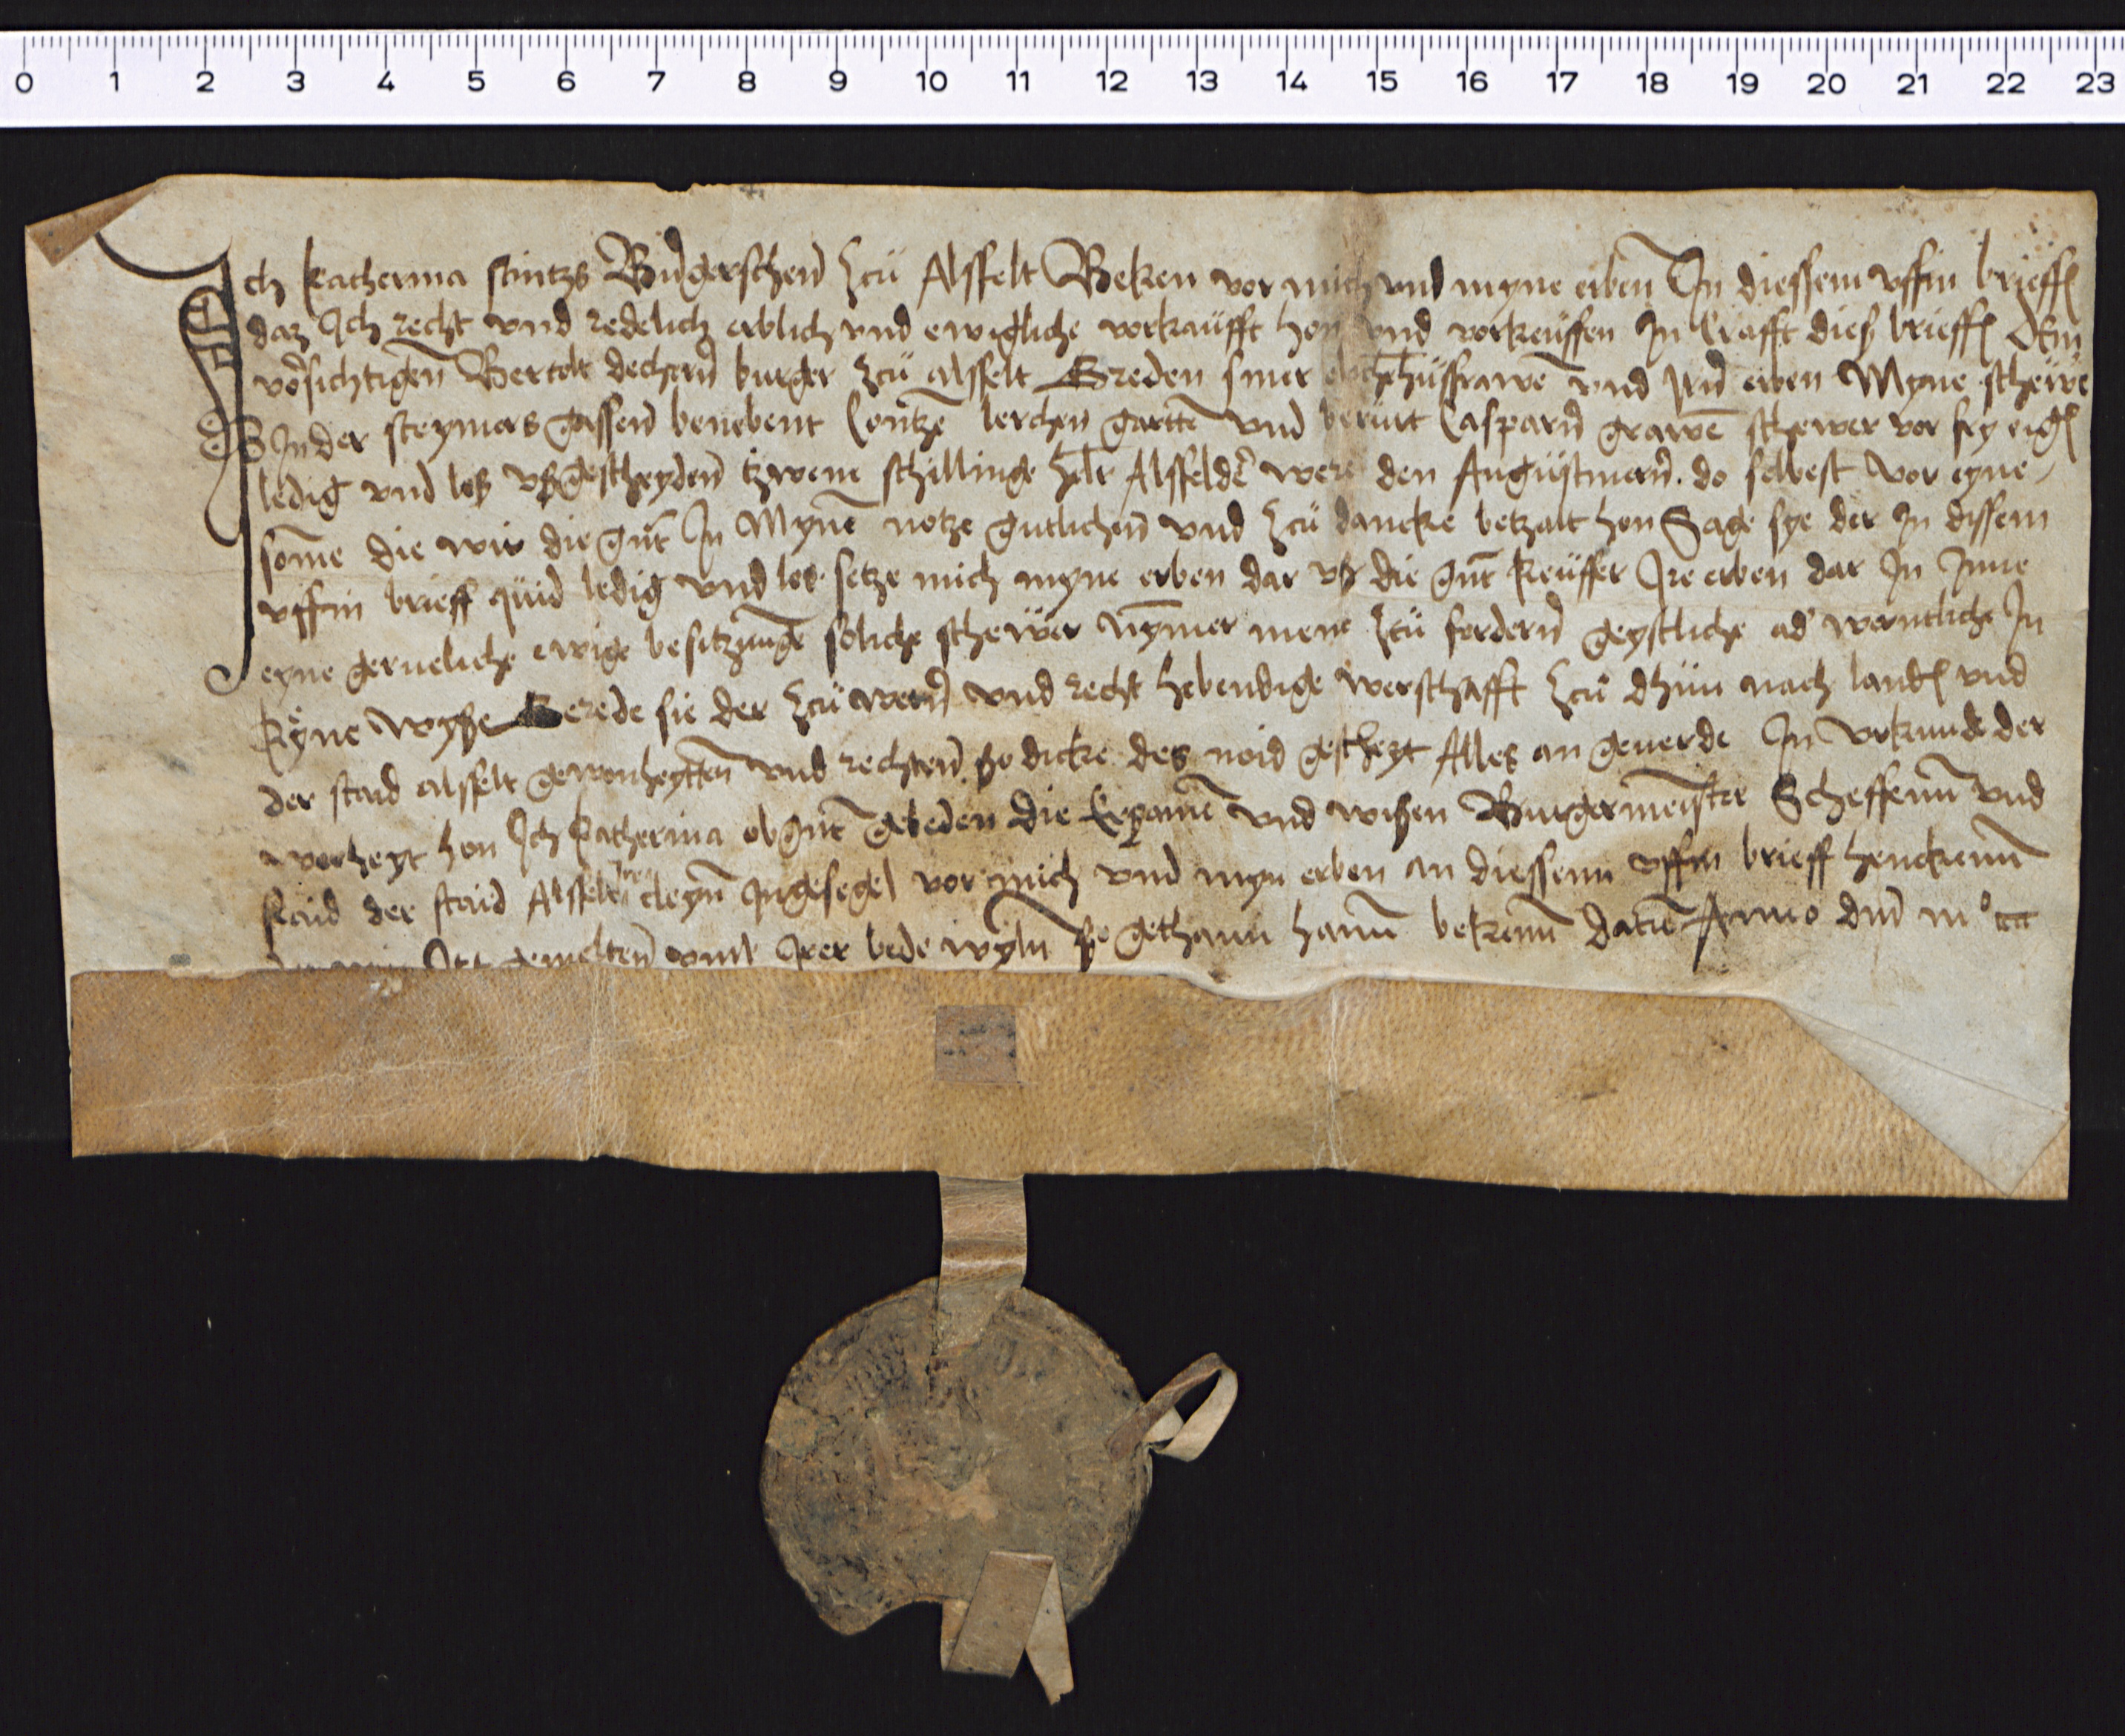 0 1 2 3 4 5 6 7 8 9 10 11 12 13 14 15 16 17 18 19 20 21 22 23
Ich Katherina Burgerschen zcu Alsfelt Beken vor mich und myne erben In diessem uffin brieffe
daz Ich recht und redelich erblich und ewigliche vorkaufft hon und vorkeuffen In Crafft dieß brieffs dem
vorsichtigen Bertolt dechern burger zcu alsfelt Greden siner elichen hußfrawen und Iren erben Myne schewer
In der steyners gassen benebent Contzen lerchen gartten und berurt Casparn grawen schewer vor fry eigen
ledig und loß ußgescheyden tzwene schillinge Alsfelder were den Augustinern do selbest vor eyne
some die wir die gnt In Myne notze gutlichen und zcu dancke betzalt hon Sage sye der In dissem
uffin brieff quid ledig und los setze mich myne erben dar uß die gnt keuffer Ire erben dar In Inne
eyne geruweliche ewige besitzunge soliche schewer nymmer mere zcu fordern geystliche ader werntliche In
keyne wyße Gerede sie der zcu wern und recht hebendige werschafft zcu dhun nach lands und
der staid alsfelt gewonheytten und rechten so dicke des noid geschegt Alles an geuerde In urkunde der
worheyt hon Ich Katherina obgnt gebeden die Ersamen und wißen Burgermeister Scheffenn und
Raid der staid Alsfelt Ire cleyn Ingesegel vor mich und myn erben an diessenn uffin brieff henckenn
Itzt gemelten umb Irer bede wyln so gethann hann bekenn datum Anno dm mº